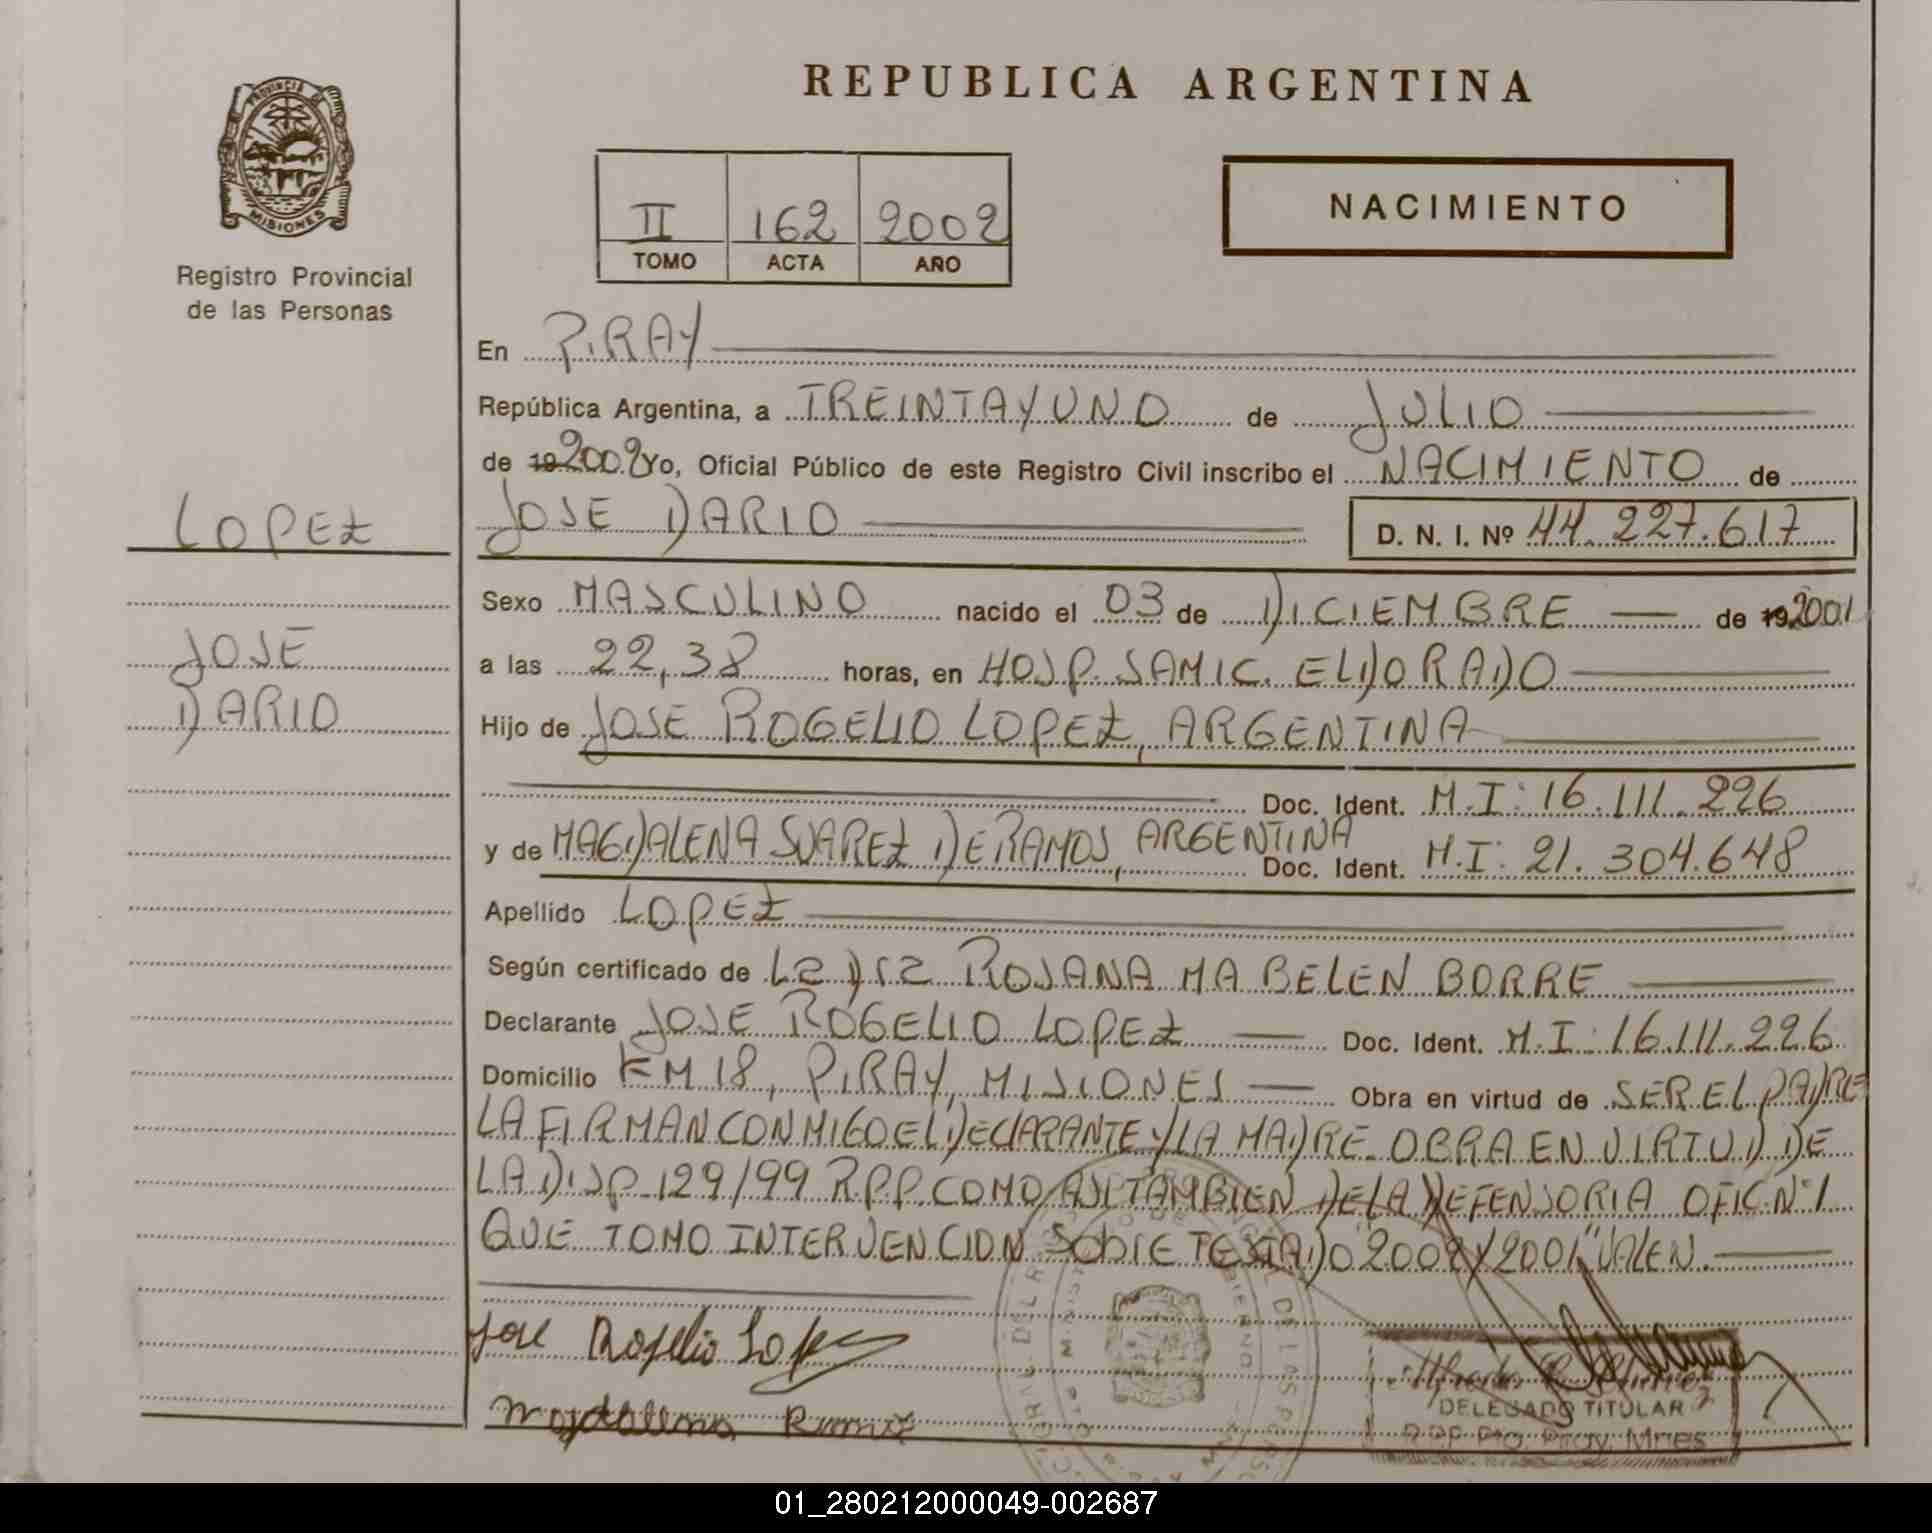 REPUBLICA ARGENTINA
PROVINCIA DE
MISIONES
Registro Provincial
de las Personas
II 162 2002
TOMO ACTA AÑO
NACIMIENTO
En PIRAY
República Argentina, a TREINTA Y UNO de JULIO
de 19 2002 Yo, Oficial Público de este Registro Civil inscribo el NACIMIENTO de
LOPEZ
JOSE DARIO
D. N. I. Nº 44.227.617
JOSE
DARIO
Sexo MASCULINO nacido el 03 de DICIEMBRE de 19 2001
a las 22,38 horas, en HOSP. SAMIC. ELDORADO
Hijo de JOSE ROGELIO LOPEZ, ARGENTINA
Doc. Ident. M.I: 16.111.226
y de MAGDALENA SUAREZ DE RAMOS, ARGENTINA Doc. Ident. M.I: 21.304.648
Apellido LOPEZ
Según certificado de ROSANA MABELEN BORRE
Declarante JOSE ROGELIO LOPEZ Doc. Ident. M.I: 16.111.226
Domicilio KM 18, PIRAY, MISIONES Obra en virtud de SER EL PADRE
LA FIRMAN CONMIGO EL DECLARANTE Y LA MADRE. OBRA EN VIRTUD DE
LA DISP. 129/99 R.P.P. COMO ASI TAMBIEN DE LA DEFENSORIA OFIC. Nº 1
QUE TOMO INTERVENCION SOBRE TEXTADO "2002 Y 2001" VALEN.
Jose Rogelio Lopez
Magdalena
DELEGADO TITULAR
R.P.P. Pto. Piray, Mnes
01_280212000049-002687